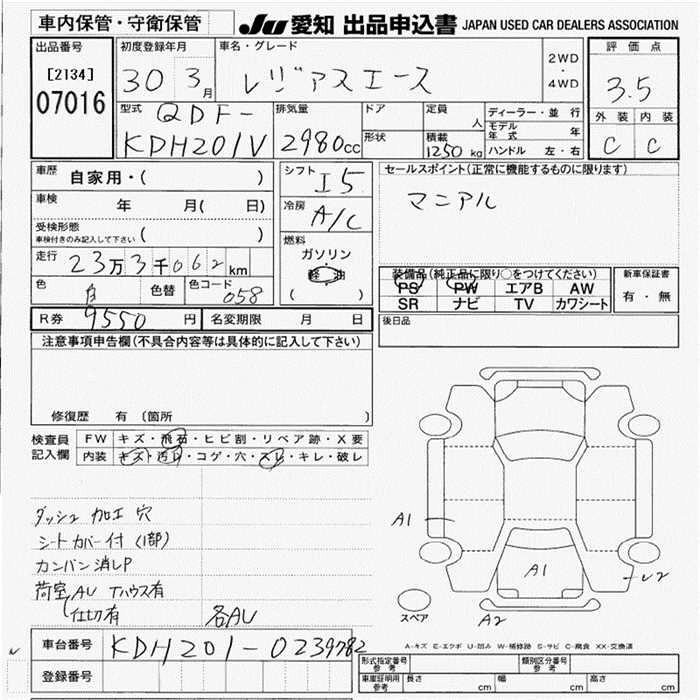 車内保管・守衛保管 JU 愛知 出品申込書 JAPAN USED CAR DEALERS ASSOCIATION
出品番号 初度登録年月 車名・グレード 評価点
[2134] 30 3月 レジアスエース 2WD・4WD 3.5
07016
型式 QDF-KDH201V 排気量 2980cc ドア 定員 人 ディーラー・並行 外装 内装
形状 積載 1250kg モデル年式 年 C C
ハンドル 左・右
車歴 自家用・( ) シフト I5 セールスポイント(正常に機能するものに限ります)
車検 年 月( 日) 冷房 A/C マニアル
受検形態 ( )
車検付きのみ記入して下さい
燃料
走行 23万3千062km ガソリン
軽油
( )
色 白 色替 色コード 058
装備品(純正品に限り○をつけてください) 新車保証書
PS PW エアB AW 有・無
SR ナビ TV カワシート
R券 9550円 名変期限 月 日 後日品
注意事項申告欄(不具合内容等は具体的に記入して下さい)
修復歴 有(箇所 )
検査員記入欄 FW キズ・飛石・ヒビ割・リペア跡・X要
内装 キズ・汚レ・コゲ・穴・スレ・キレ・破レ
ダッシュ 加工 穴
シートカバー付(1部)
カンバン消しP
荷室AU Tハウス有
仕切有 各AU
A1
A1
A2
スペア
A-キズ E-エクボ U-凹み W-補修跡 S-サビ C-腐食 XX-交換済
車台番号 KDH201-0239782
登録番号
型式指定番号 参考 類別区分番号 参考
車庫証明用 参考 長さ cm 幅 cm 高さ cm